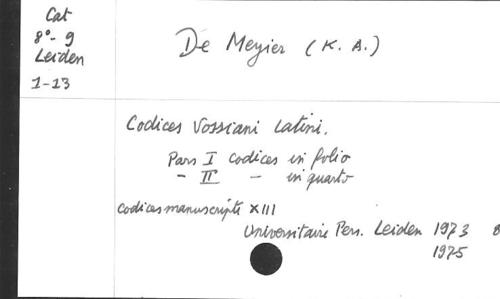 Cat
8°- 9
Leiden
1-13
De Meyier (K. A.)
Codices Vossiani Latini.
Pars I codices in folio
- II - in quarto
codices manuscripti XIII
Universitaire Pers. Leiden 1973 8
1975